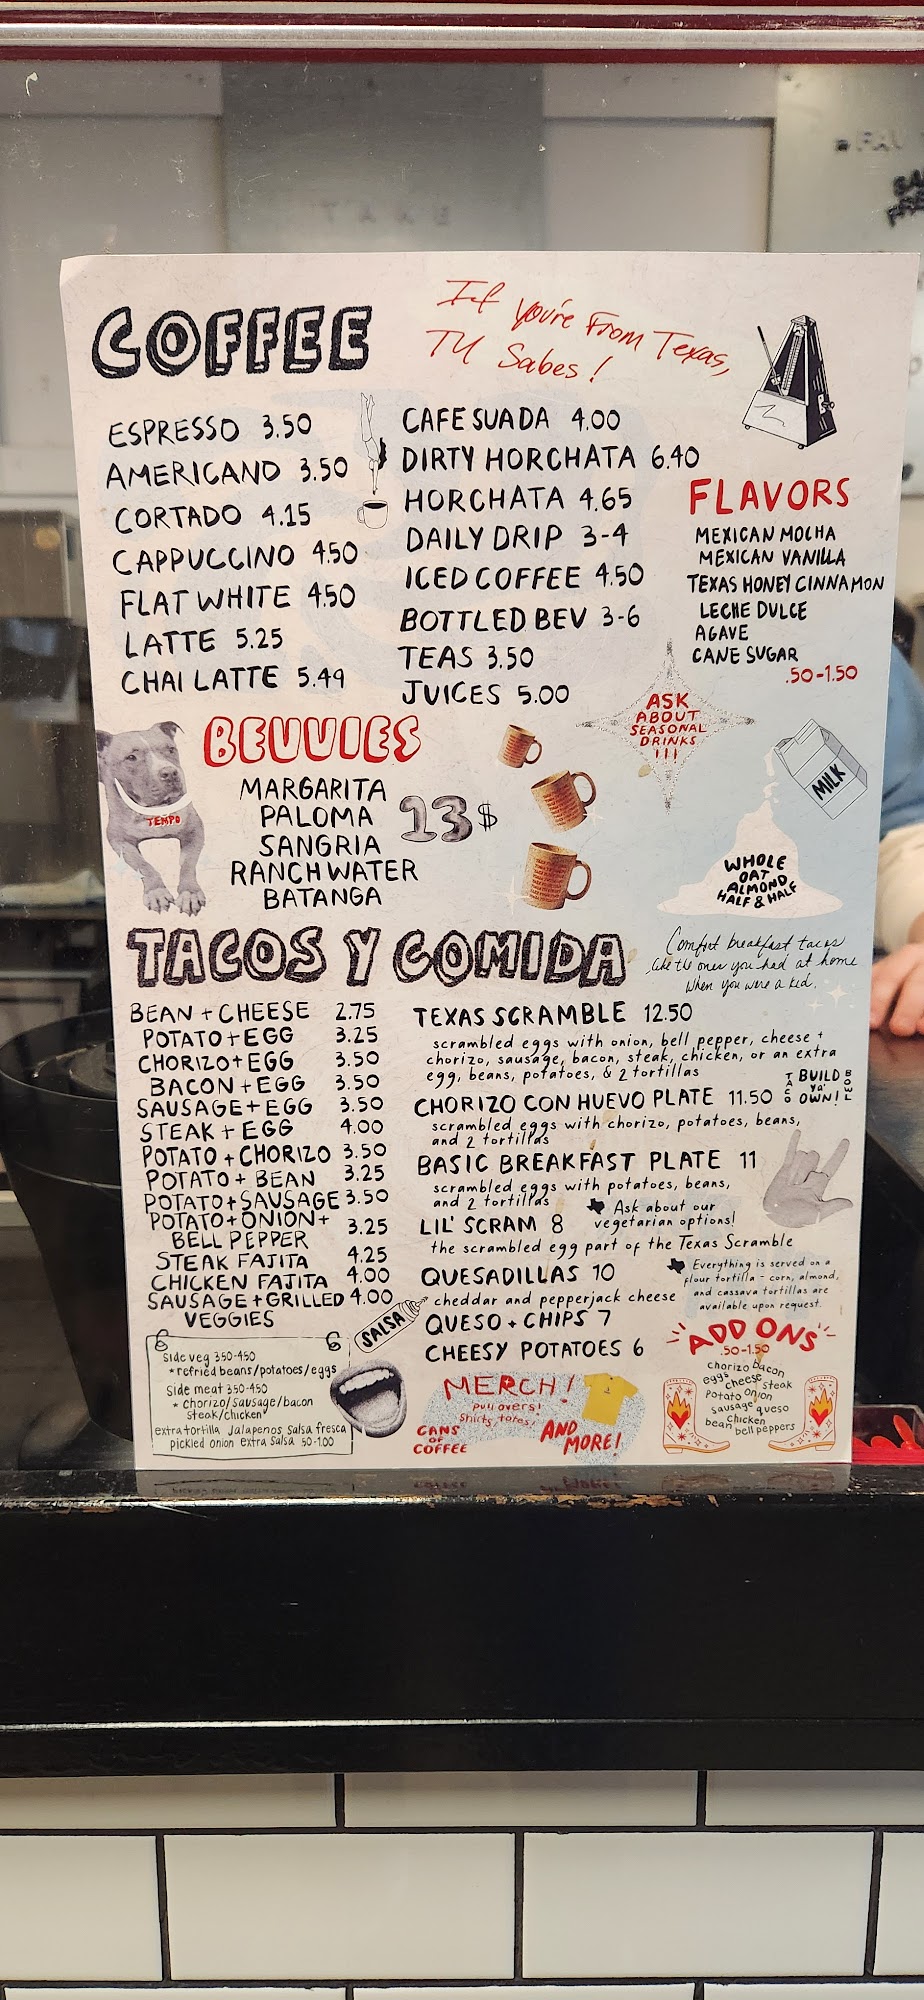 COFFEE
If you're From Texas,
TU Sabes!
ESPRESSO 3.50
AMERICANO 3.50
CORTADO 4.15
CAPPUCCINO 4.50
FLAT WHITE 4.50
LATTE 5.25
CHAI LATTE 5.49
CAFE SUADA 4.00
DIRTY HORCHATA 6.40
HORCHATA 4.65
DAILY DRIP 3-4
ICED COFFEE 4.50
BOTTLED BEV 3-6
TEAS 3.50
JUICES 5.00
FLAVORS
MEXICAN MOCHA
MEXICAN VANILLA
TEXAS HONEY CINNAMON
LECHE DULCE
AGAVE
CANE SUGAR
.50-1.50
ASK
ABOUT
SEASONAL
DRINKS
!!!
BEVVIES
TEMPO
MARGARITA
PALOMA
SANGRIA
RANCH WATER
BATANGA
13$
MILK
WHOLE
OAT
ALMOND
HALF & HALF
TACOS Y COMIDA
Comfort breakfast tacos
like the ones you had at home
when you were a kid.
BEAN + CHEESE 2.75
POTATO + EGG 3.25
CHORIZO + EGG 3.50
BACON + EGG 3.50
SAUSAGE + EGG 3.50
STEAK + EGG 4.00
POTATO + CHORIZO 3.50
POTATO + BEAN 3.25
POTATO + SAUSAGE 3.50
POTATO + ONION +
BELL PEPPER 3.25
STEAK FAJITA 4.25
CHICKEN FAJITA 4.00
SAUSAGE + GRILLED 4.00
VEGGIES
TEXAS SCRAMBLE 12.50
scrambled eggs with onion, bell pepper, cheese +
chorizo, sausage, bacon, steak, chicken, or an extra
egg, beans, potatoes, & 2 tortillas
CHORIZO CON HUEVO PLATE 11.50
scrambled eggs with chorizo, potatoes, beans,
and 2 tortillas
TACO
BUILD
ya'
OWN!
BOWL
BASIC BREAKFAST PLATE 11
scrambled eggs with potatoes, beans,
and 2 tortillas
Ask about our
vegetarian options!
LIL' SCRAM 8
the scrambled egg part of the Texas Scramble
QUESADILLAS 10
cheddar and pepperjack cheese
QUESO + CHIPS 7
CHEESY POTATOES 6
Everything is served on a
flour tortilla - corn, almond,
and cassava tortillas are
available upon request.
SALSA
Side veg 350-450
*refried beans/potatoes/eggs
side meat 350-450
* chorizo/sausage/bacon
steak/chicken
extra tortilla Jalapenos Salsa fresca
pickled onion extra Salsa 50-1.00
MERCH!
pull overs!
Shirts, totes!
CANS
OF
COFFEE
AND
MORE!
ADD ONS
.50-1.50
chorizo bacon
eggs cheese steak
potato onion
sausage queso
chicken
bean bell peppers